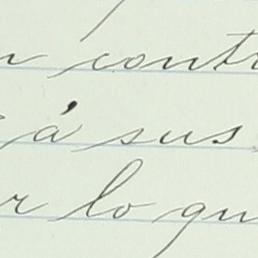 contr
á sus
lo qu